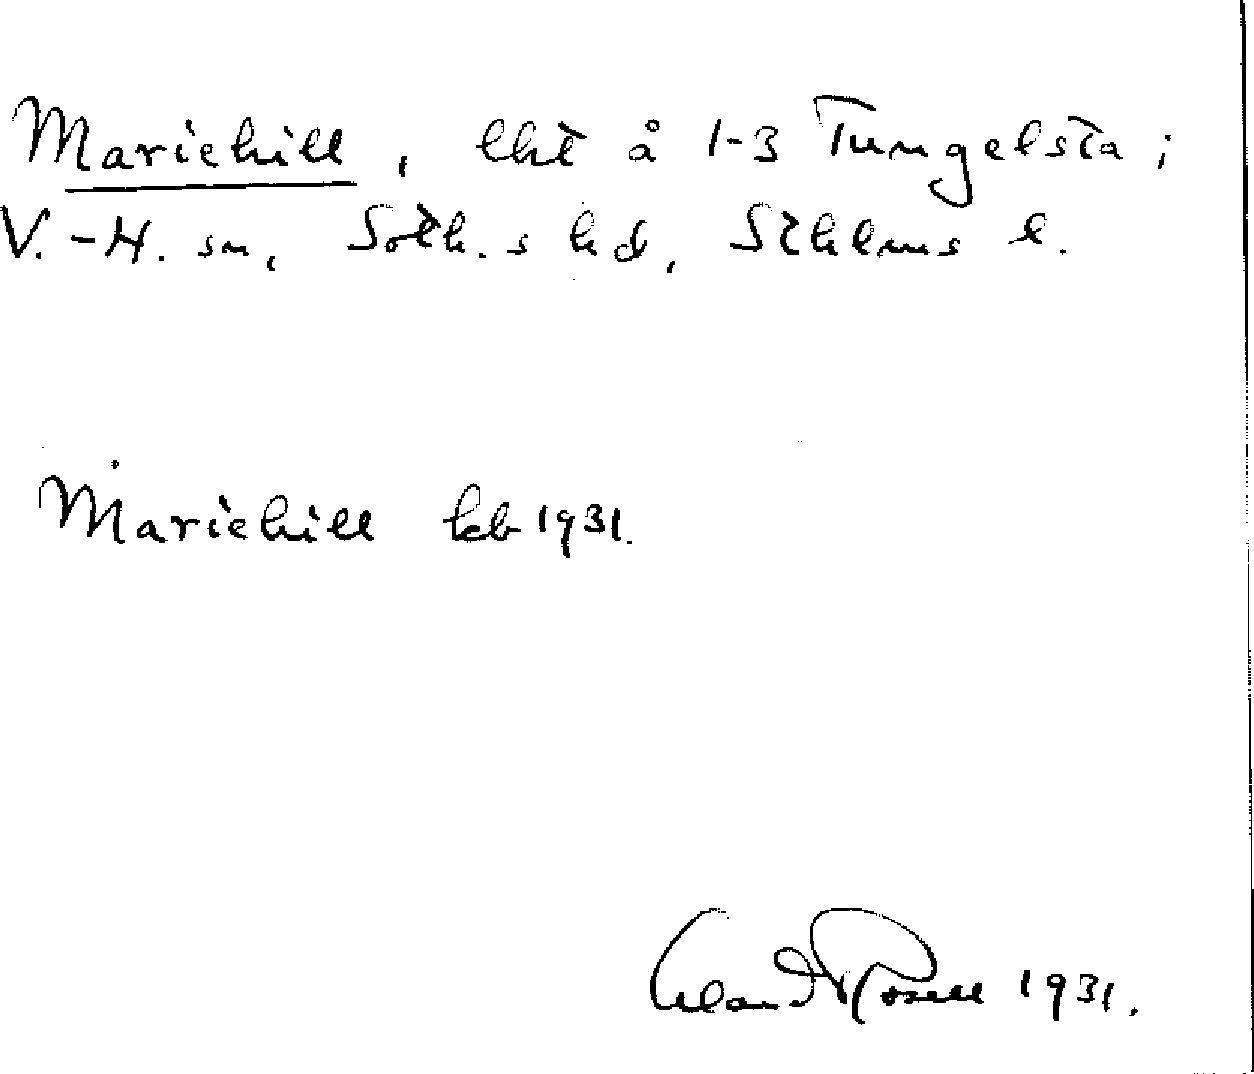 Mariehill, lht å 1-3 Tungelsta i
V.-H. sn, Soth.s hd, Sthlms l.
Mariehill kb 1931.
Erland Rosell 1931.